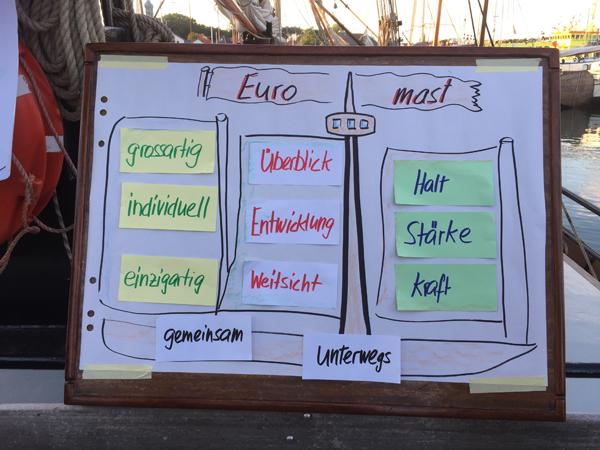 Euro mast
grossartig
individuell
einzigartig
Überblick
Entwicklung
Weitsicht
Halt
Stärke
Kraft
gemeinsam
unterwegs